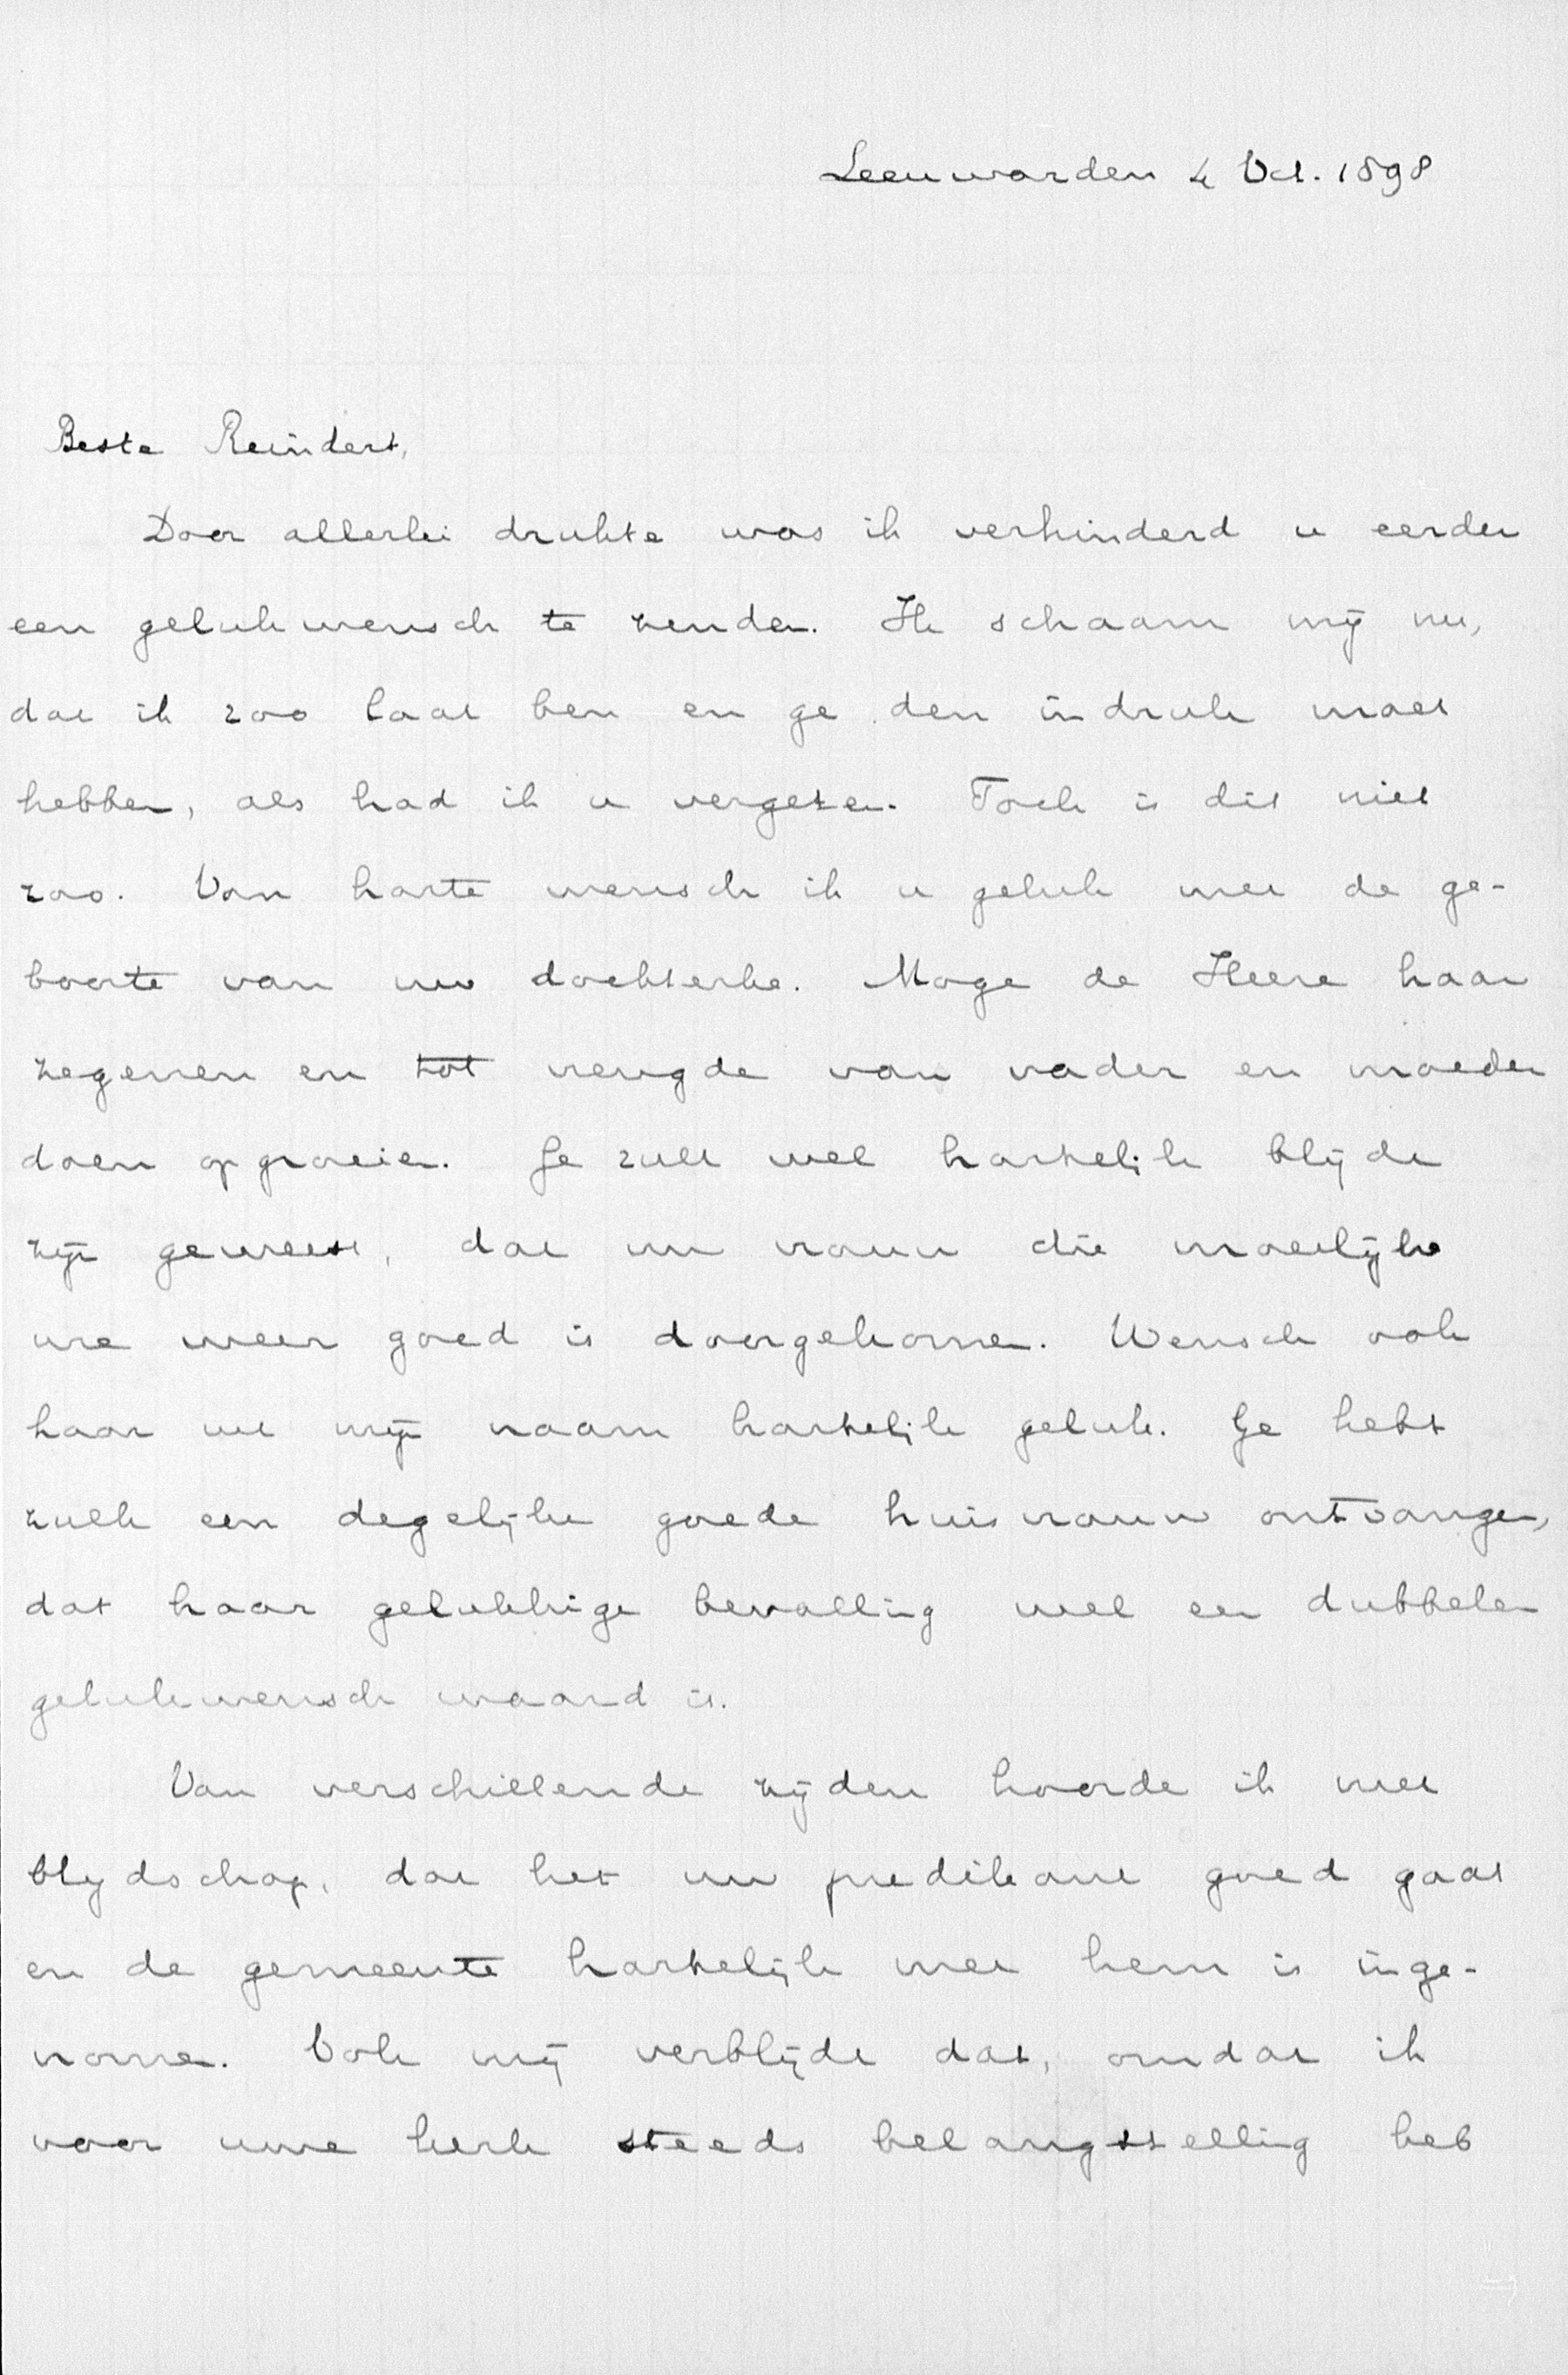 Leeuwarden 4 Oct. 1898
Beste Reindert,
Door allerlei drukte was ik verhinderd u eerder
een gelukwensch te zenden. Ik schaam mij nu,
dat ik zoo laat ben en ge den indruk moet
hebben, als had ik u vergeten. Toch is dit niet
zoo. Van harte wensch ik u geluk met de ge-
boorte van uw dochterke. Moge de Heere haar
zegenen en tot vreugde van vader en moeder
doen opgroeien. Ge zult wel hartelijk blijde
zijn geweest, dat uw vrouw die moeilijke
ure weer goed is doorgekomen. Wensch ook
haar uit mijn naam hartelijk geluk. Ge hebt
zulk een degelijke goede huisvrouw ontvangen,
dat haar gelukkige bevalling wel een dubbelen
gelukwensch waard is.
Van verschillende zijden hoorde ik met
blijdschap, dat het uw predikant goed gaat
en de gemeente hartelijk met hem is inge-
nomen. Ook mij verblijdt dat, omdat ik
voor uwe kerk steeds belangstelling heb